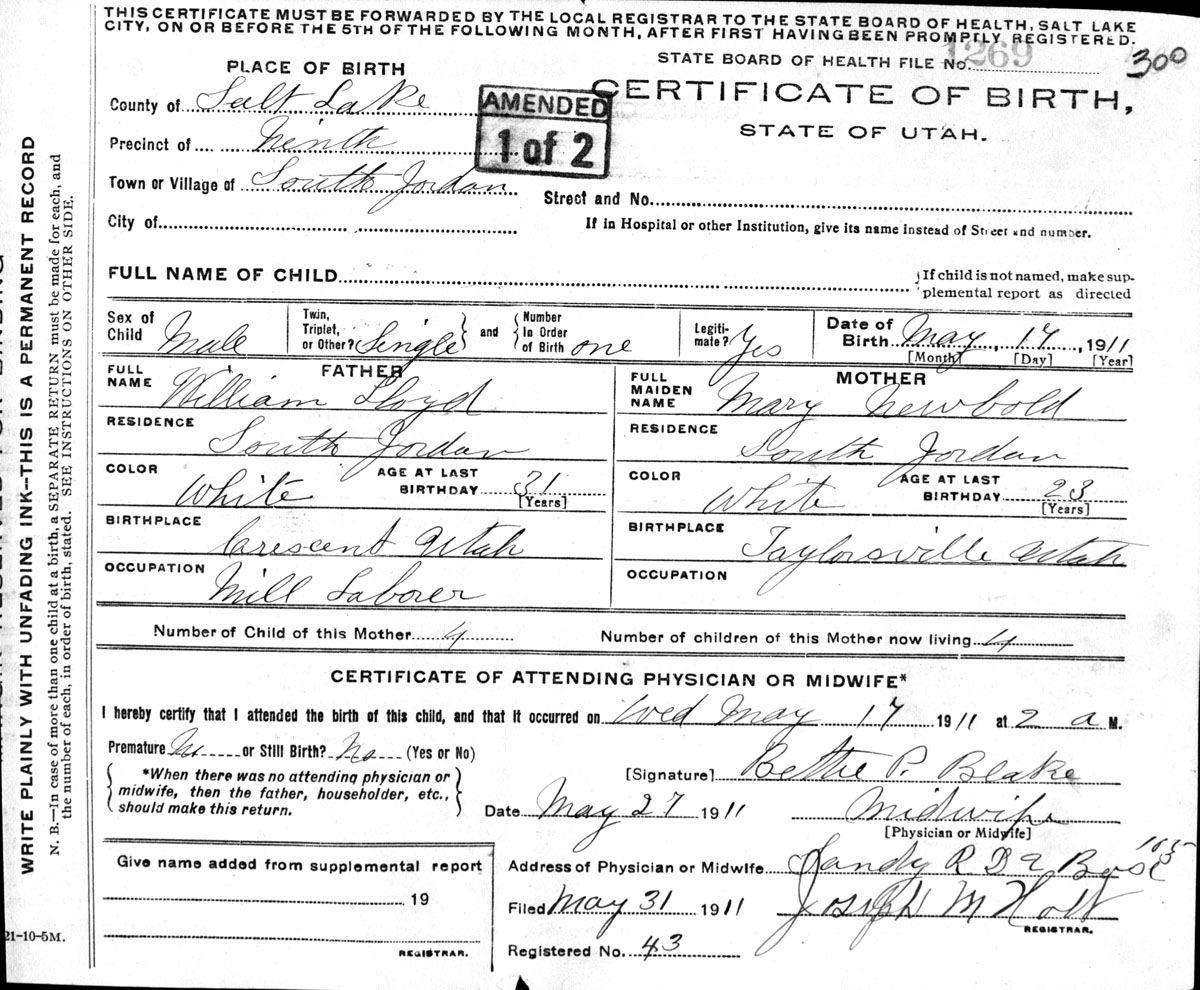 THIS CERTIFICATE MUST BE FORWARDED BY THE LOCAL REGISTRAR TO THE STATE BOARD OF HEALTH, SALT LAKE
CITY, ON OR BEFORE THE 5TH OF THE FOLLOWING MONTH, AFTER FIRST HAVING BEEN PROMPTLY REGISTERED.
STATE BOARD OF HEALTH FILE No. 1269 300
PLACE OF BIRTH
CERTIFICATE OF BIRTH,
STATE OF UTAH.
AMENDED
1 of 2
County of Salt Lake
Precinct of Ninth
Town or Village of South Jordan
Street and No.
City of
If in Hospital or other Institution, give its name instead of Street and number.
FULL NAME OF CHILD
{If child is not named, make sup-
plemental report as directed
Sex of Child Male
Twin, Triplet, or Other? Single } and { Number In Order of Birth one
Legiti-mate? Yes
Date of Birth May, 17, 1911
[Month] [Day] [Year]
FATHER
FULL NAME William Lloyd
RESIDENCE South Jordan
COLOR White AGE AT LAST BIRTHDAY 31 [Years]
BIRTHPLACE Crescent Utah
OCCUPATION Mill Laborer
MOTHER
FULL MAIDEN NAME Mary Newbold
RESIDENCE South Jordan
COLOR White AGE AT LAST BIRTHDAY 23 [Years]
BIRTHPLACE Taylorsville Utah
OCCUPATION
Number of Child of this Mother 4 Number of children of this Mother now living 4
CERTIFICATE OF ATTENDING PHYSICIAN OR MIDWIFE*
I hereby certify that I attended the birth of this child, and that it occurred on Wed May 17 1911 at 2 a M.
Premature No or Still Birth? No (Yes or No)
{*When there was no attending physician or
midwife, then the father, householder, etc.,
should make this return.}
[Signature] Bettie P. Blake
Date May 27 1911 Midwife
[Physician or Midwife]
Give name added from supplemental report
19
REGISTRAR.
Address of Physician or Midwife Sandy R D 2 Box
Filed May 31 1911 Joseph M Holt
REGISTRAR.
Registered No. 43
21-10-5M.
WRITE PLAINLY WITH UNFADING INK—THIS IS A PERMANENT RECORD
N. B.—In case of more than one child at a birth, a SEPARATE RETURN must be made for each, and
the number of each, in order of birth, stated. SEE INSTRUCTIONS ON OTHER SIDE.